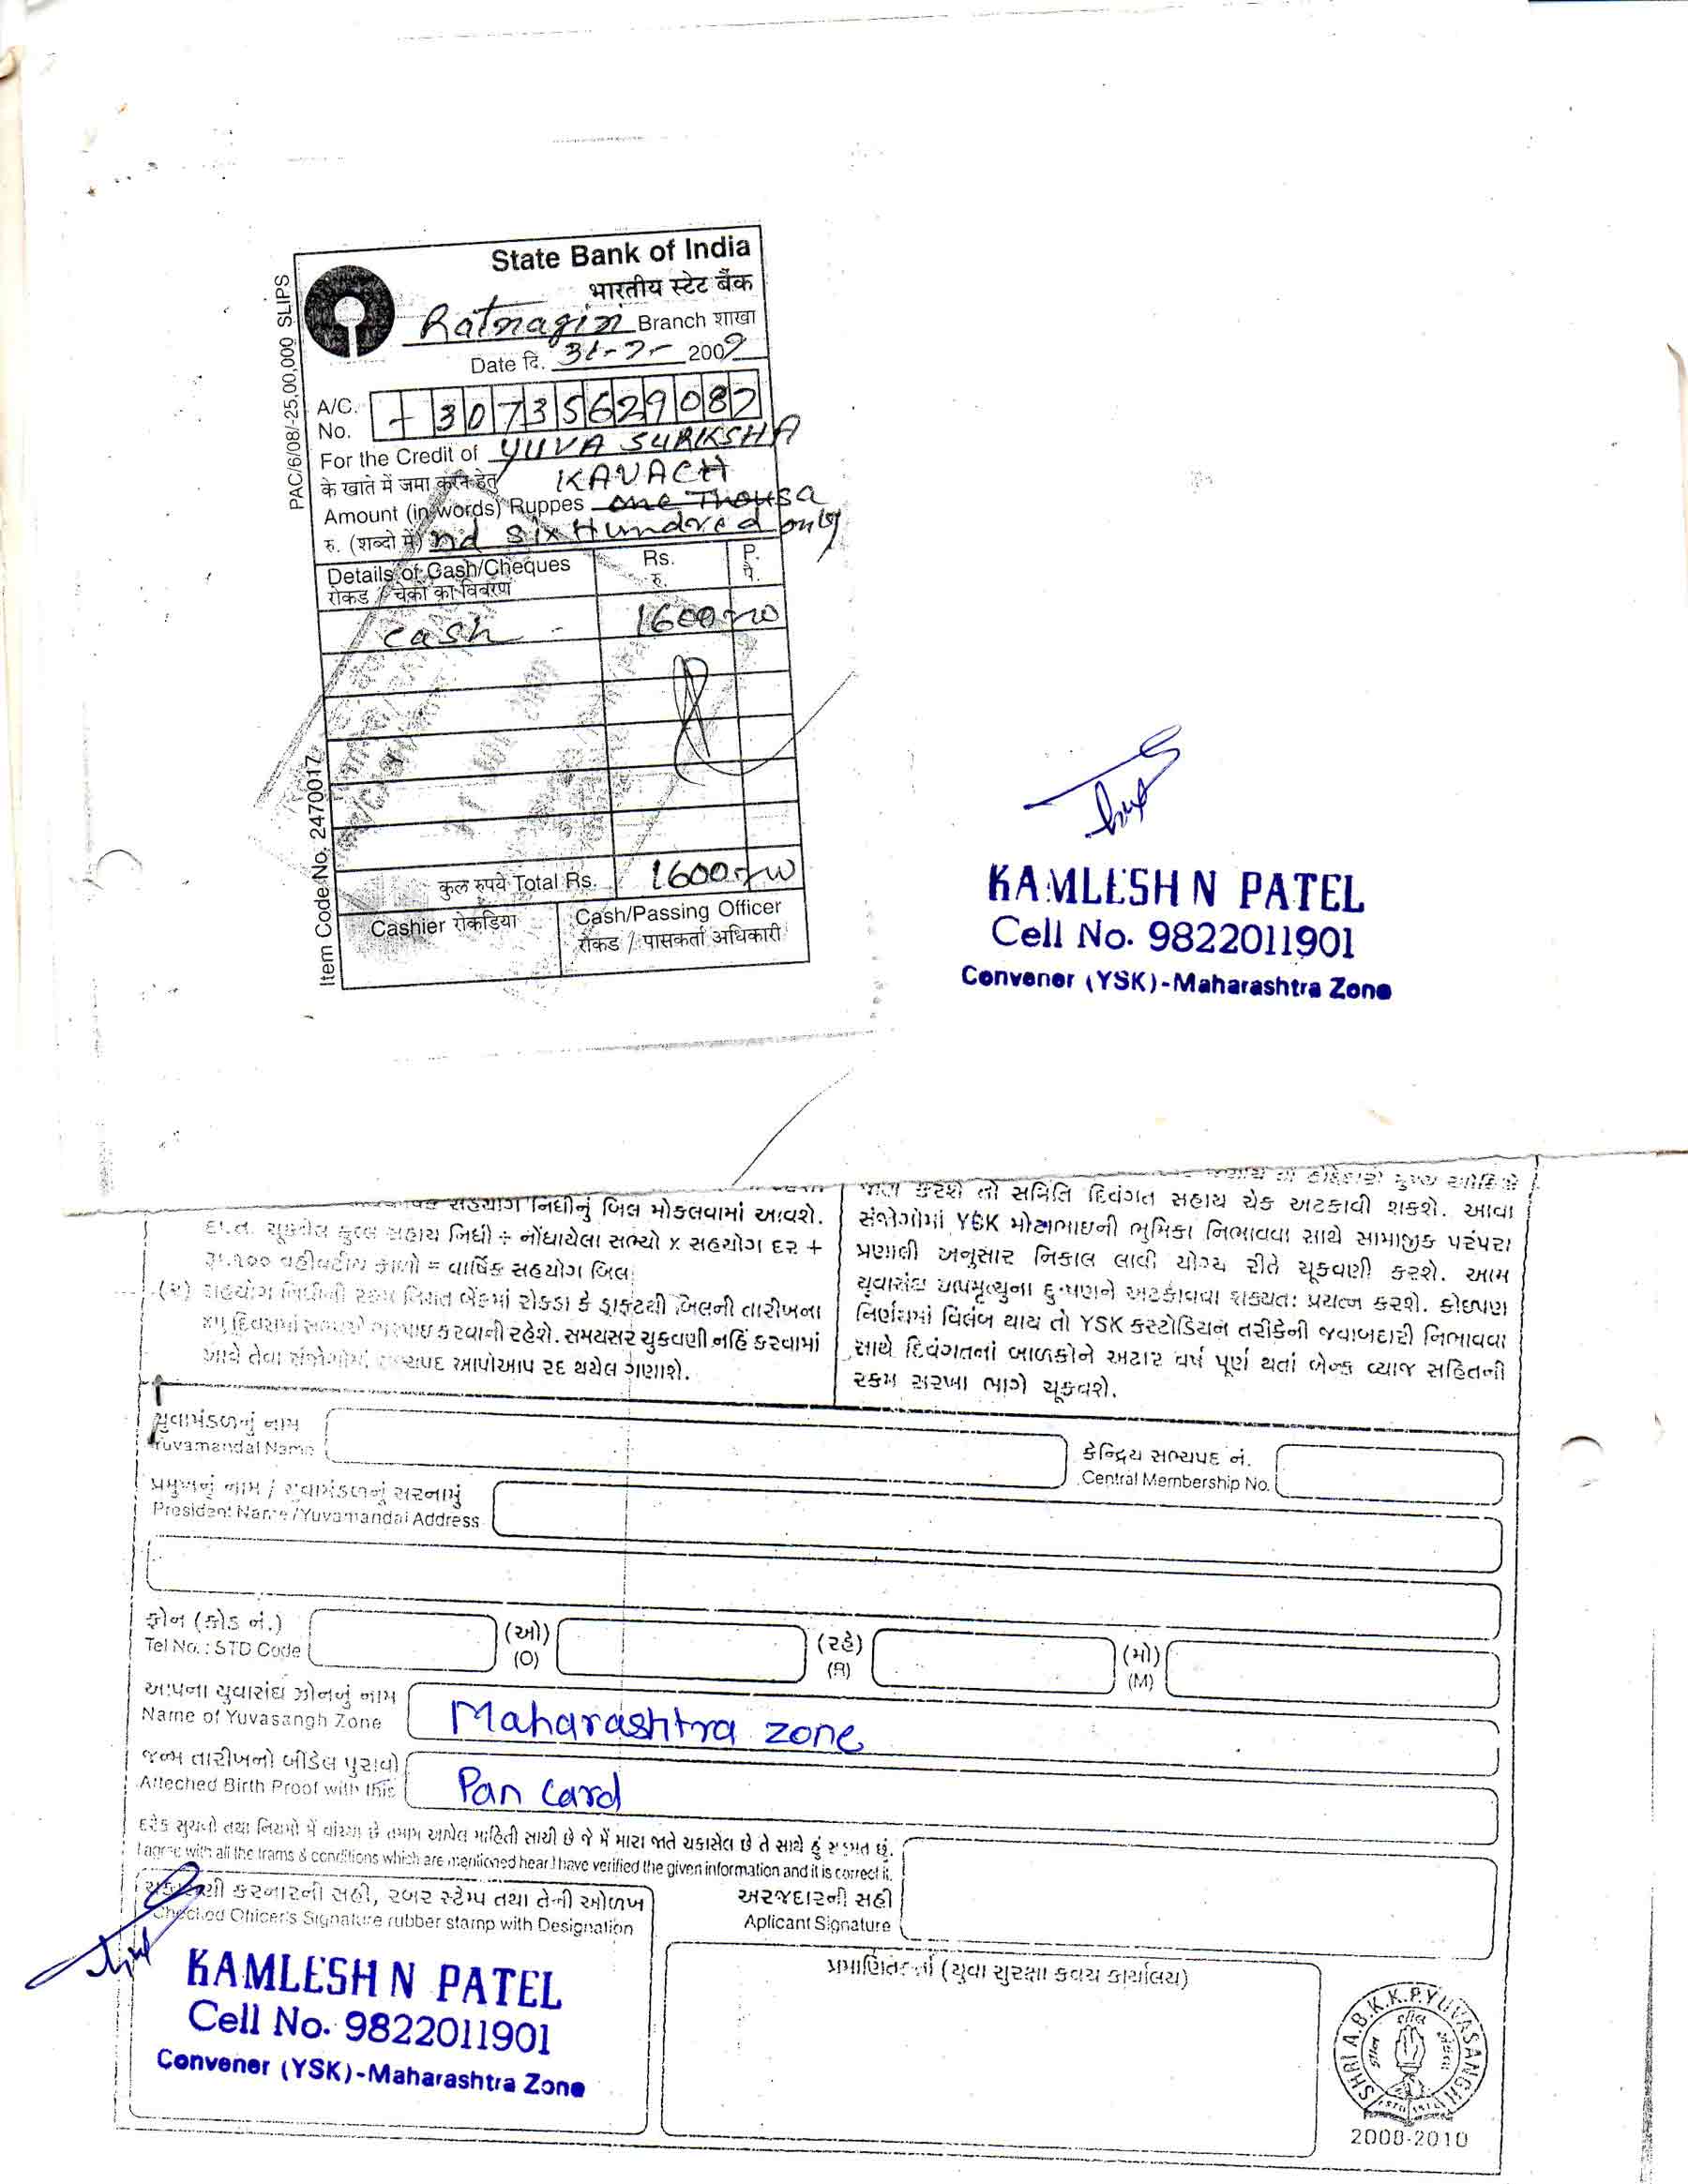 State Bank of India
भारतीय स्टेट बैंक
Ratnagiri Branch शाखा
Date दि. 31-7- 2009
PAC/6/08/-25,00,000 SLIPS
A/C. No. 30735629087
For the Credit of YUVA SURIKSHA
के खाते में जमा करने हेतु KAVACH
Amount (in words) Ruppes one Thousa
रु. (शब्दो में) nd Six Hundred only
Details of Cash/Cheques Rs. P.
रोकड / चेकों का विवरण रु. पै.
cash 1600
कुल रुपये Total Rs. 1600
Cashier रोकडिया Cash/Passing Officer
रोकड / पासकर्ता अधिकारी
Item Code No. 2470017
KAMLESH N PATEL
Cell No. 9822011901
Convener (YSK)-Maharashtra Zone
સહયોગ નિધીનું બિલ મોકલવામાં આવશે.
દા.ત. કુલ સહાય નિધી ÷ નોંધાયેલા સભ્યો x સહયોગ દર +
રૂા.૧૦૦ વહીવટીય ફાળો = વાર્ષિક સહયોગ બિલ
(૨) સહયોગ નિધીની રકમ નિયત બેંકમાં રોકડા કે ડ્રાફ્ટથી બિલની તારીખના
૪૫ દિવસમાં ભરપાઇ કરવાની રહેશે. સમયસર ચુકવણી નહિં કરવામાં
આવે તેવા સંજોગોમાં સભ્યપદ આપોઆપ રદ થયેલ ગણાશે.
જાણ કરશે તો સમિતિ દિવંગત સહાય ચેક અટકાવી શકશે. આવા
સંજોગોમાં YSK મોટાભાઇની ભુમિકા નિભાવવા સાથે સામાજીક પરંપરા
પ્રણાલી અનુસાર નિકાલ લાવી યોગ્ય રીતે ચૂકવણી કરશે. આમ
યુવાસંઘ અપમૃત્યુના દુઃષણને અટકાવવા શક્યતઃ પ્રયત્ન કરશે. કોઇપણ
નિર્ણયમાં વિલંબ થાય તો YSK કસ્ટોડિયન તરીકેની જવાબદારી નિભાવવા
સાથે દિવંગતનાં બાળકોને અઢાર વર્ષ પૂર્ણ થતાં બેન્ક વ્યાજ સહિતની
રકમ સરખા ભાગે ચૂકવશે.
યુવામંડળનું નામ
Yuvamandal Name
કેન્દ્રિય સભ્યપદ નં.
Central Membership No.
પ્રમુખનું નામ / યુવામંડળનું સરનામું
President Name /Yuvamandal Address
ફોન (કોડ નં.) (ઓ) (રહે) (મો)
Tel No. : STD Code (O) (R) (M)
આપના યુવાસંઘ ઝોનનું નામ
Name of Yuvasangh Zone Maharashtra zone
જન્મ તારીખનો બીડેલ પુરાવો
Atteched Birth Proof with this Pan Card
દરેક સુચનો તથા નિયમો મેં વાંચ્યા છે તમામ આપેલ માહિતી સાચી છે જે મેં મારા જાતે ચકાસેલ છે તે સાથે હું સહમત છું.
I agree with all the trams & conditions which are mentioned hear I have verified the given information and it is correct it.
ચકાસણી કરનારની સહી, રબર સ્ટેમ્પ તથા તેની ઓળખ
Checked Officer's Signature rubber stamp with Designation
અરજદારની સહી
Aplicant Signature
KAMLESH N PATEL
Cell No. 9822011901
Convener (YSK)-Maharashtra Zone
પ્રમાણિતકર્તા (યુવા સુરક્ષા કવચ કાર્યાલય)
SHRI A.B.K.K.P. YUVASANGH
2008-2010